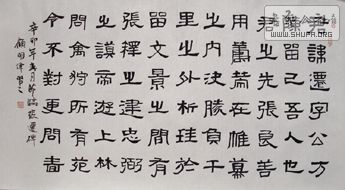 君諱遷字公方
陳留己吾人也
君之先張良善
用籌策在帷幕
之内決勝負千
里之外析珪於
留文景之間有
張釋之建忠弼
之謨帝遊上林
問禽狩所有苑
令不對更問嗇
辛卯年春月節臨張遷碑
WWW.SHUFA.ORG